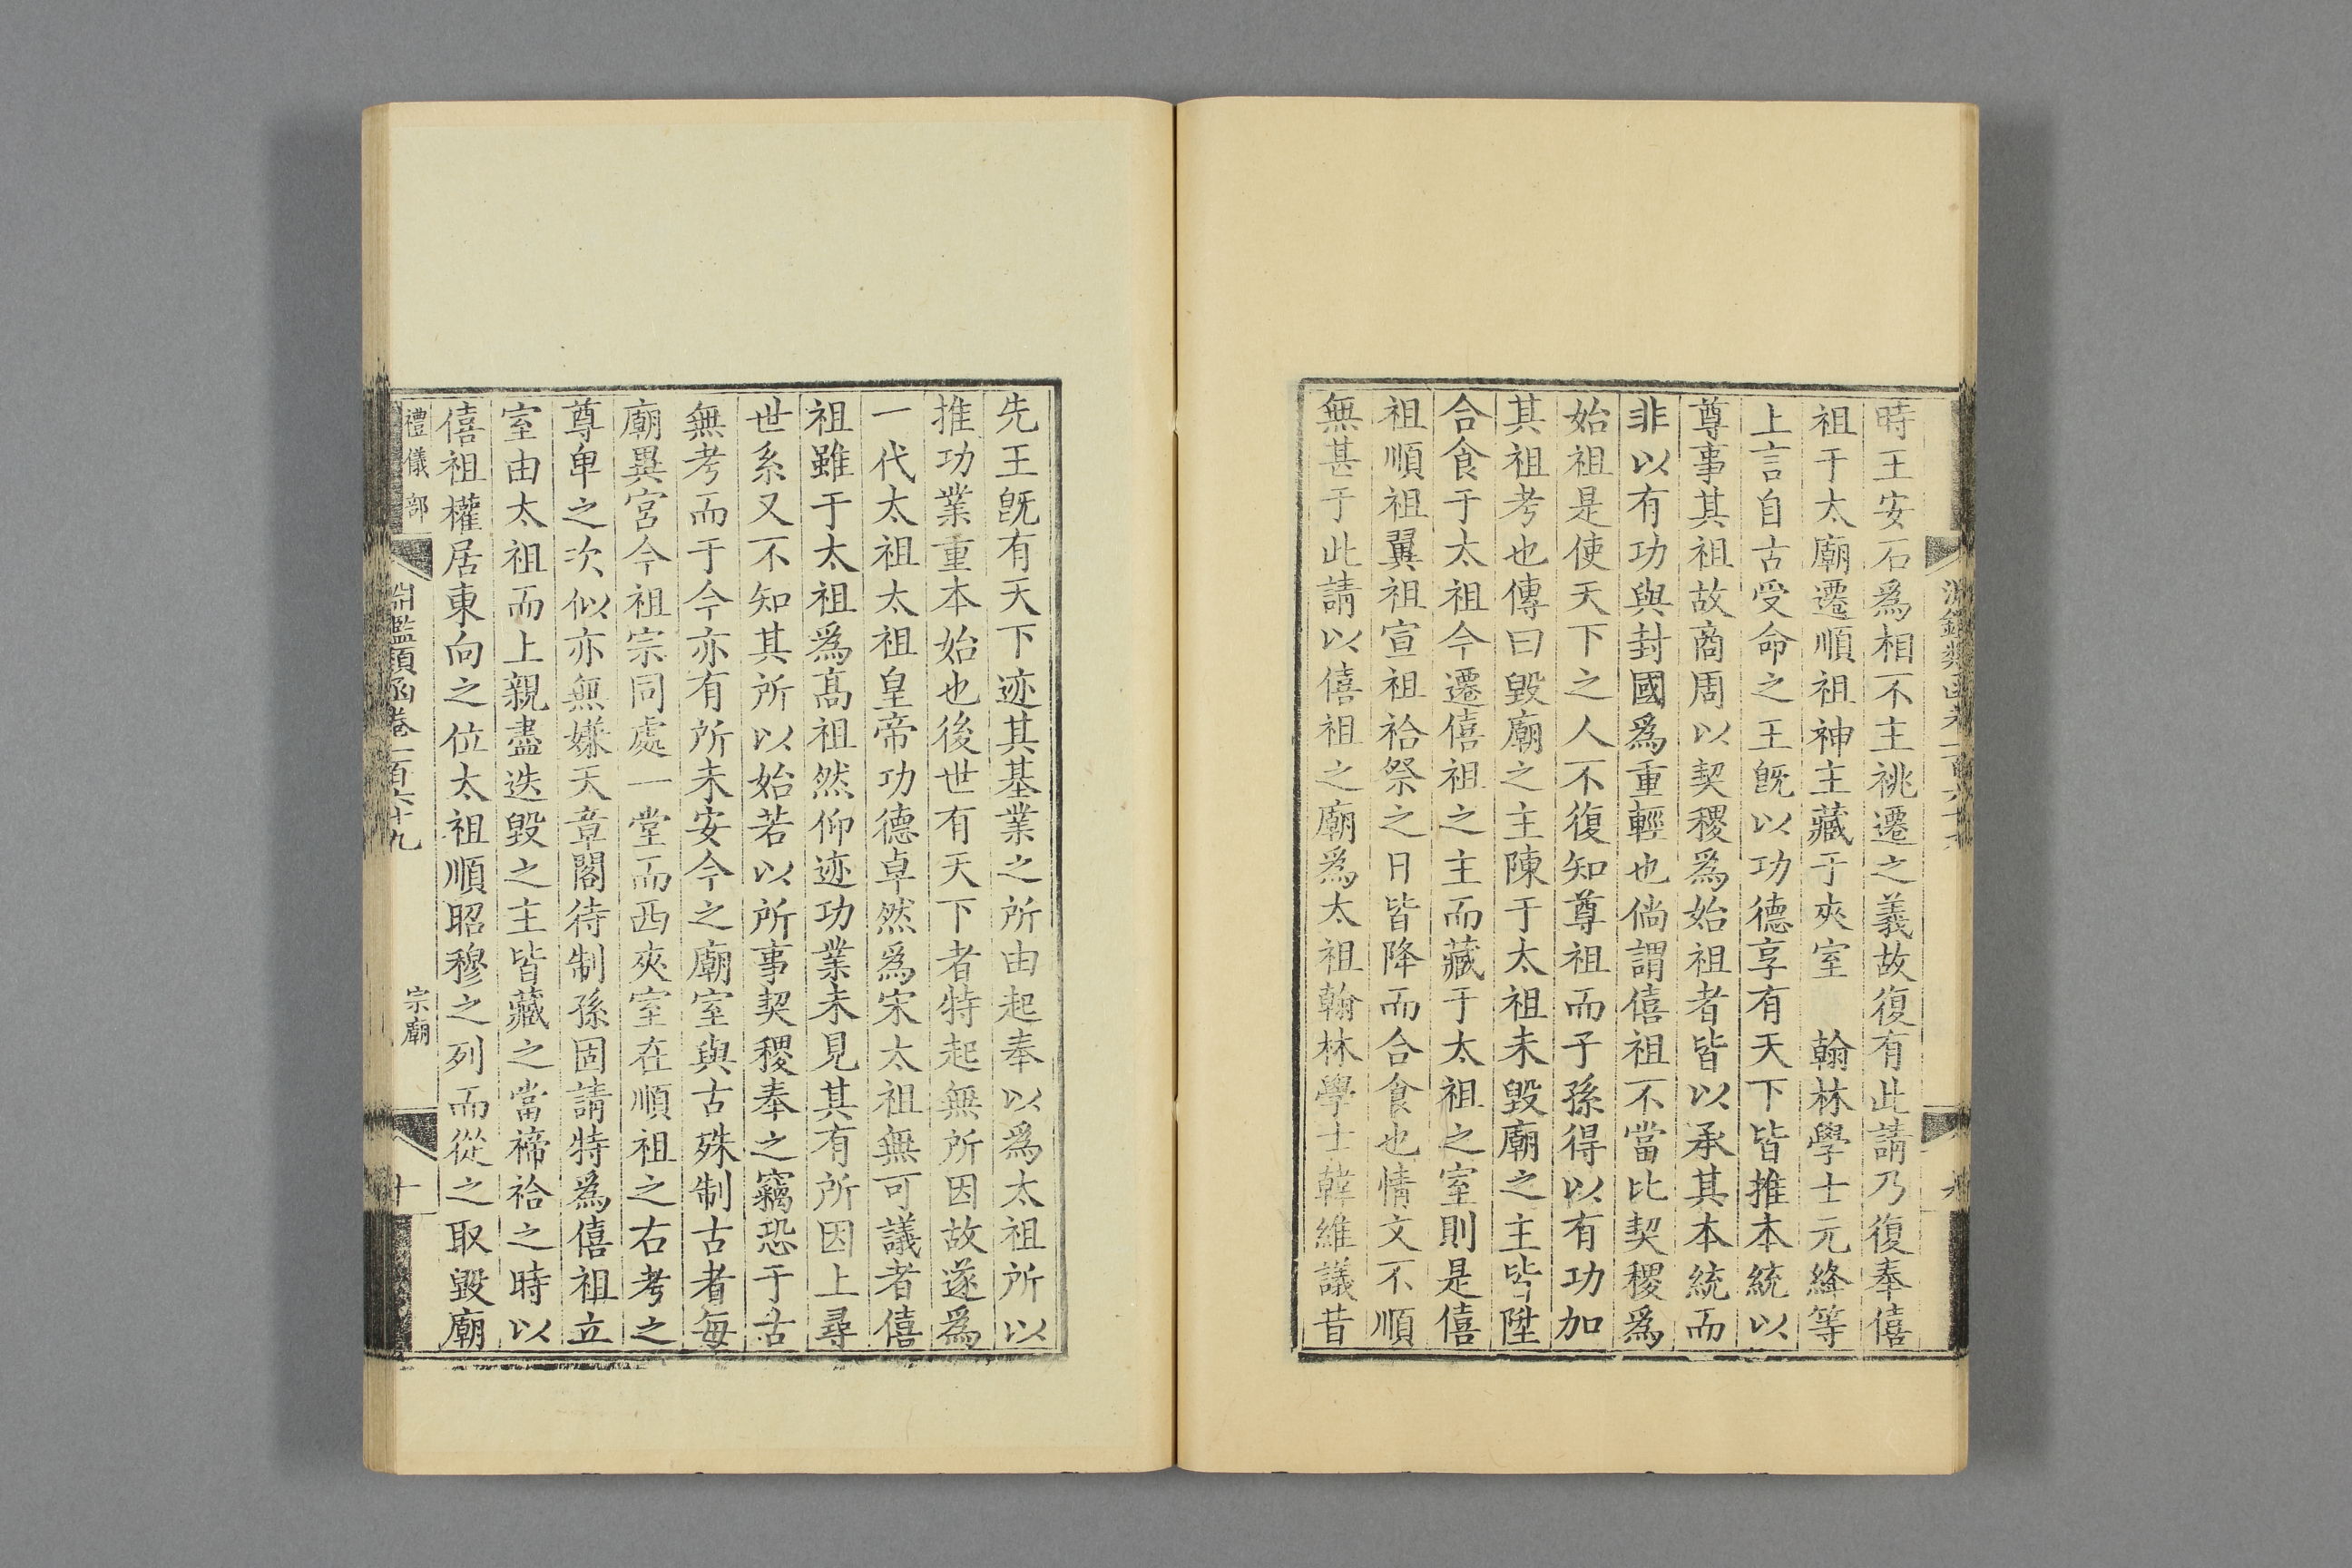 時王安石爲相不主祧遷之義故復有此請乃復奉僖
祖于太廟遷順祖神主藏于夾室　翰林學士元絳等
上言自古受命之王旣以功德享有天下皆推本統以
尊事其祖故商周以契稷爲始祖者皆以承其本統而
非以有功與封國爲重輕也倘謂僖祖不當比契稷爲
始祖是使天下之人不復知尊祖而子孫得以有功加
其祖考也傳曰毀廟之主陳于太祖未毀廟之主皆陞
合食于太祖今遷僖祖之主而藏于太祖之室則是僖
祖順祖翼祖宣祖祫祭之日皆降而合食也情文不順
無甚于此請以僖祖之廟爲太祖翰林學士韓維議昔
先王旣有天下迹其基業之所由起奉以爲太祖所以
推功業重本始也後世有天下者特起無所因故遂爲
一代太祖太祖皇帝功德卓然爲宋太祖無可議者僖
祖雖于太祖爲高祖然仰迹功業未見其有所因上尋
世系又不知其所以始若以所事契稷奉之竊恐于古
無考而于今亦有所未安今之廟室與古殊制古者每
廟異宮今祖宗同處一堂而西夾室在順祖之右考之
尊卑之次似亦無嫌天章閣待制孫固請特爲僖祖立
室由太祖而上親盡迭毀之主皆藏之當禘祫之時以
僖祖權居東向之位太祖順昭穆之列而從之取毀廟
禮儀部
淵鑑類函卷一百六十九
宗廟
十